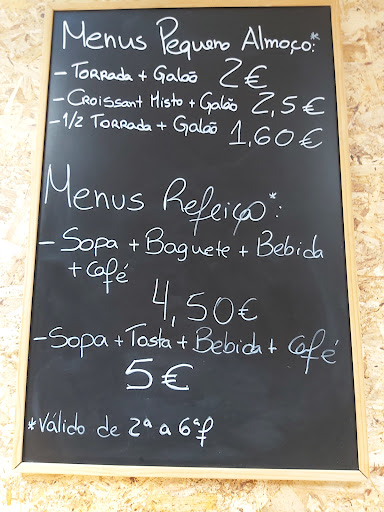 Menus Pequeno Almoço*:
- Torrada + Galão 2€
- Croissant Misto + Galão 2,5€
- 1/2 Torrada + Galão 1,60€
Menus Refeição*:
- Sopa + Baguete + Bebida
+ Café
4,50€
- Sopa + Tosta + Bebida + Café
5€
*Válido de 2ª a 6ªf